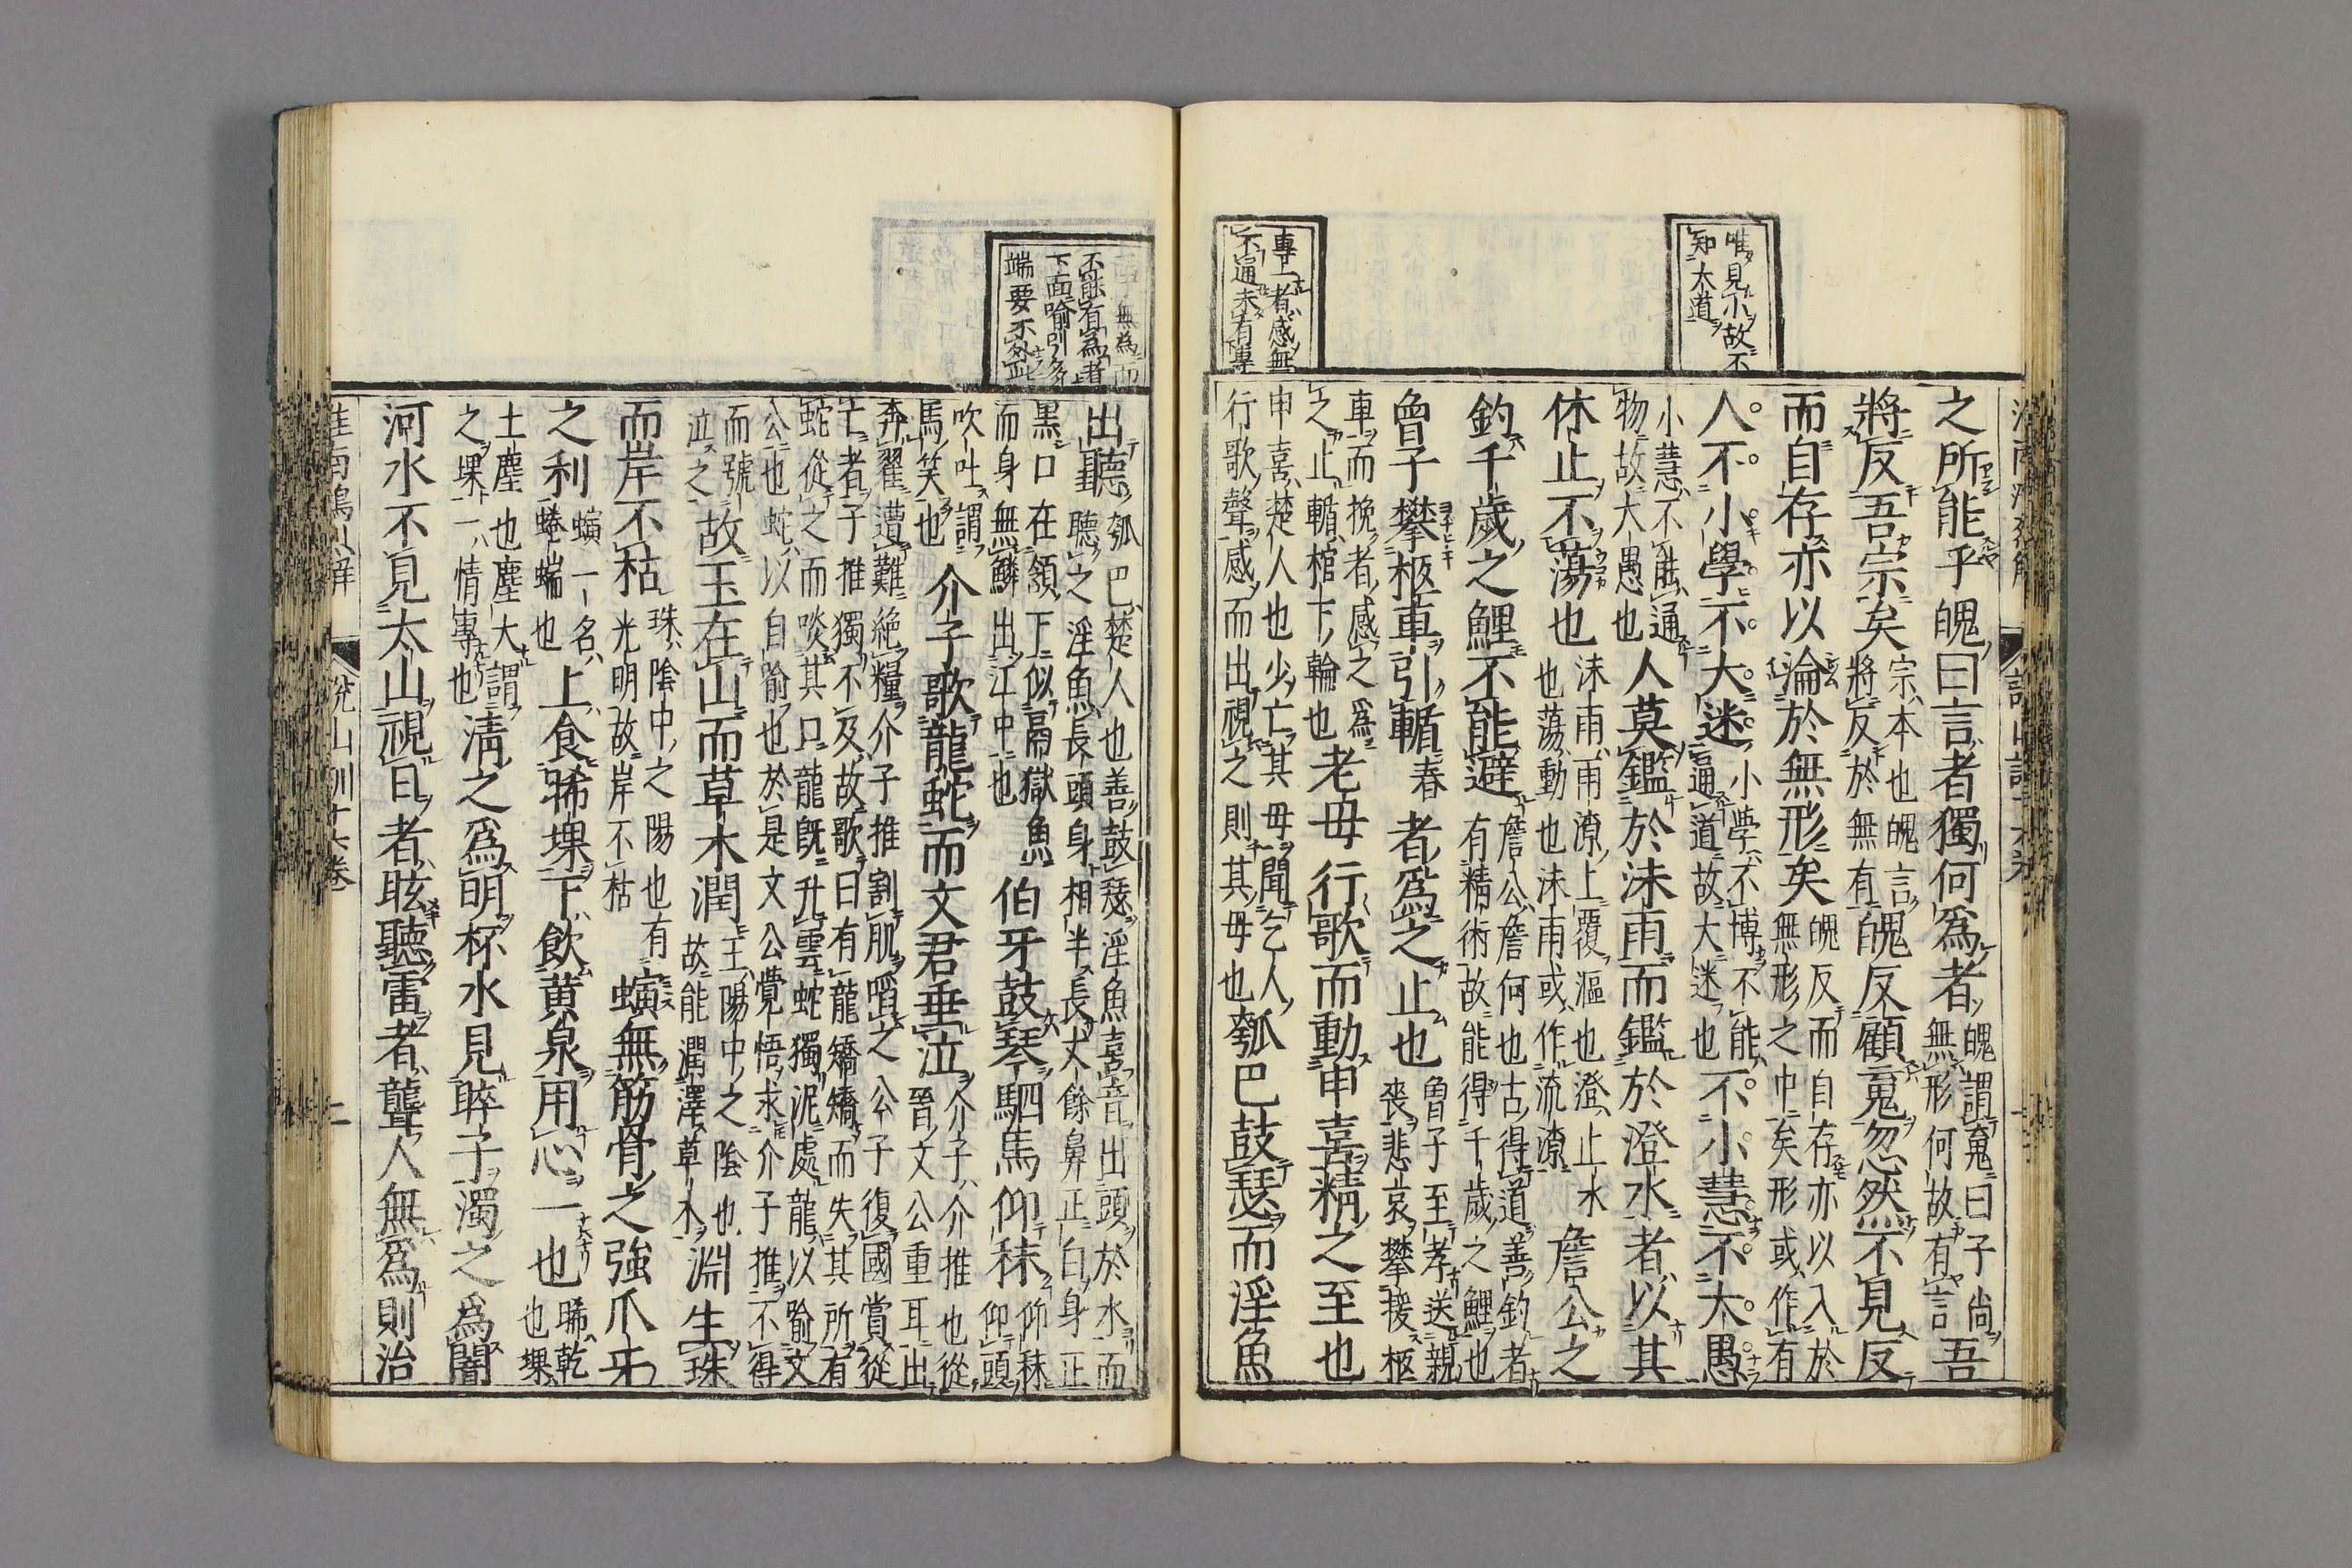 唯見小故不
知大道
專一者感無
不通未有專
之所能乎魄曰言者獨何爲者魄謂䰟曰子尚無形何故有言吾
將反吾宗矣宗本也魄言將反於無有魄反顧䰟忽然不見反
而自存亦以淪於無形矣魄反而自存亦以入於無形之中矣形或作有
人不小學不大迷小學不博不能通道故大迷也不小慧不大愚
小慧不能通物故大愚也人莫鑑於沬雨而鑑於澄水者以其
休止不蕩也沬雨雨潦上覆漚也澄止水也蕩動也沬雨或作流潦詹公之
釣千歲之鯉不能避詹公詹何也古得道善釣者有精術故能得千歲之鯉也
曾子攀柩車引輴春者爲之止也曾子至孝送親喪悲哀攀援柩
車而挽者感之爲之止輴棺下輪也老母行歌而動申喜精之至也
申喜楚人也少亡其母聞乞人行歌聲感而出視之則其母也瓠巴鼓瑟而淫魚
不能有爲者
下面喻引多
端要不外此
出聽瓠巴楚人也善鼓瑟淫魚喜音出頭於水而聽之淫魚長頭身相半長丈餘鼻正白身正
黒口在頷下似鬲獄魚而身無鱗出江中也伯牙鼓琴駟馬仰秣仰秣仰頭
吹吐謂馬笑也介子歌龍蛇而文君垂泣介子介推也從晉文公重耳出
奔翟遭難絶糧介子推割肌啗之公子復國賞從亡者子推獨不及故歌曰有龍矯矯而失其所有
蛇從之而啖其口龍旣升雲蛇獨泥處龍以喻文公也蛇以自喻也於是文公覺悟求介子推不得
而號泣之故玉在山而草木潤玉陽中之陰也故能潤澤草木淵生珠
而岸不枯珠陰中之陽也有光明故岸不枯螾無筋骨之強爪牙
之利螾一名蜷蝺也上食晞堁下飮黄泉用心一也晞乾也堁
土塵也塵大謂之堁一情專也淸之爲明杯水見眸子濁之爲闇
河水不見太山視日者眩聽雷者聾人無爲則治